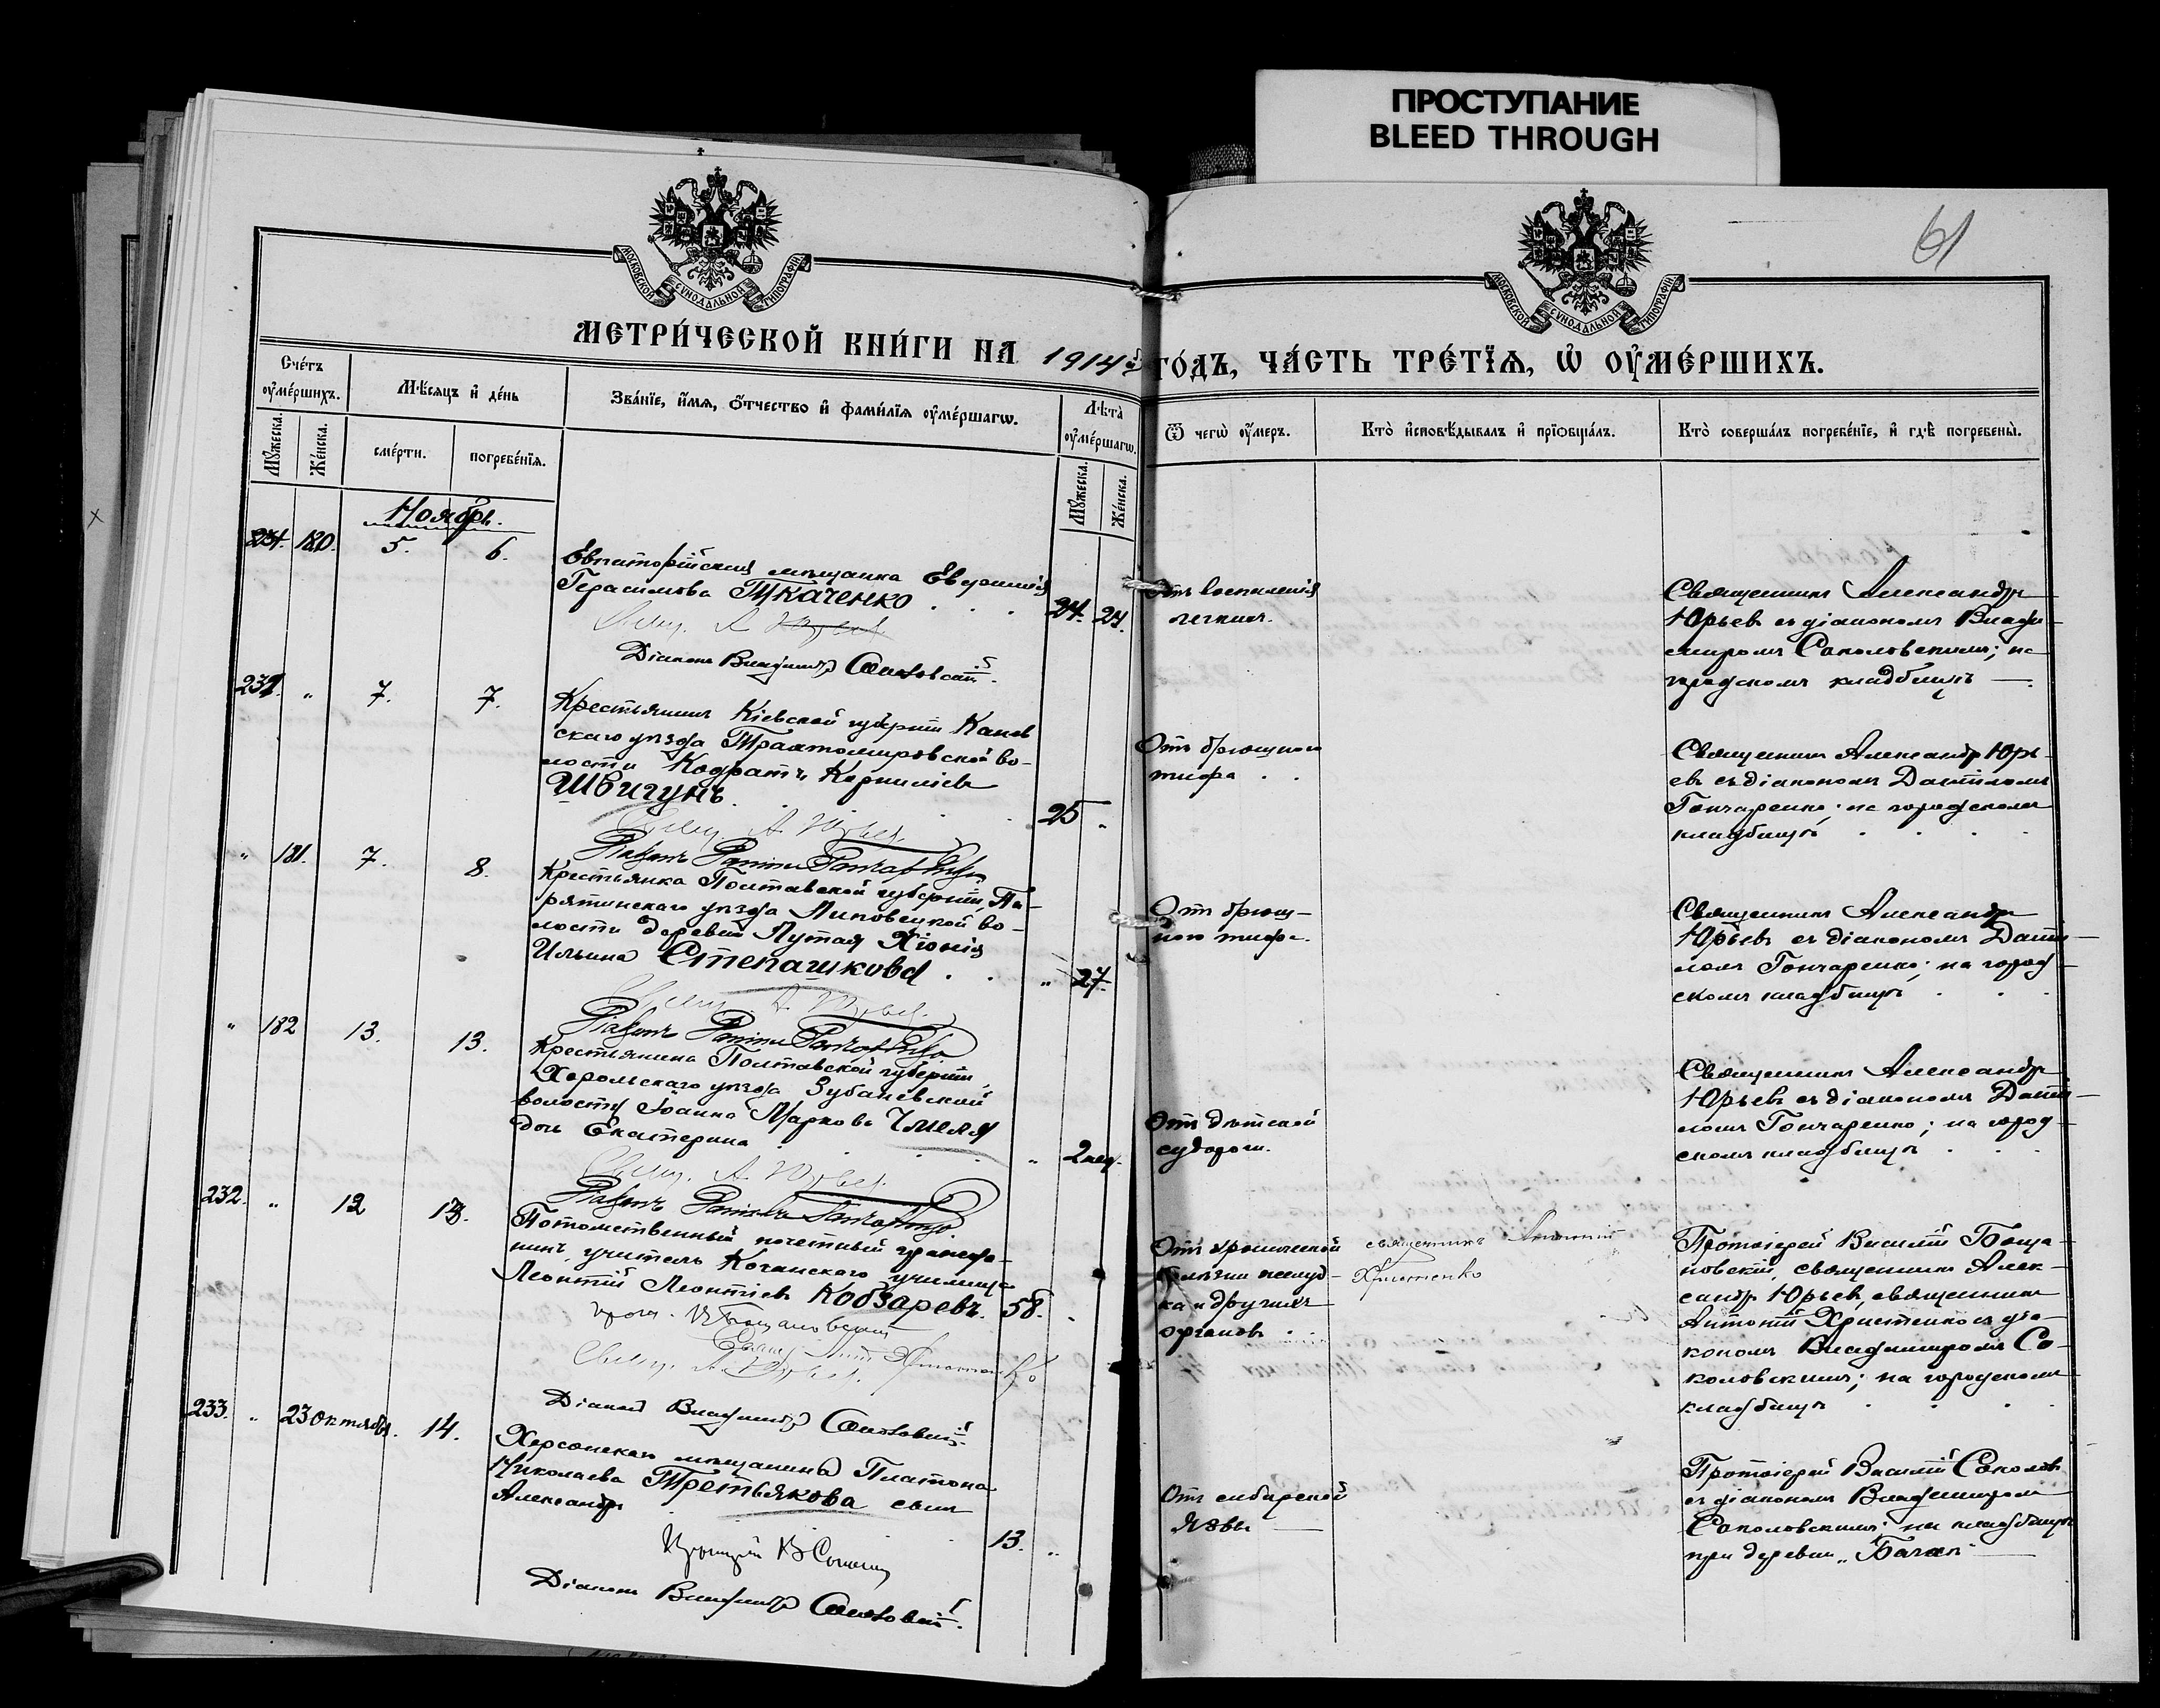 ПРОСТУПАНИЕ
BLEED THROUGH
61
МОСКОВСКОЙ СѴНОДАЛЬНОЙ ТИПОГРАФІИ
МОСКОВСКОЙ СѴНОДАЛЬНОЙ ТИПОГРАФІИ
МЕТРИ́ЧЕСКОЙ КНИ́ГИ НА 1914й ГО́ДЪ, ЧА́СТЬ ТРЕ́ТЇѦ, Ѡ҆ ОУ҆МЕ́РШИХЪ.
Сче́тъ оу҆ме́ршихъ.
Мѣ́сяцъ и҆ де́нь
Зва́нїе, и҆́мѧ, ѻ҆́тчество и҆ фами́лїѧ оу҆ме́ршагѡ.
Лѣ́та оу҆ме́ршагѡ.
Ѿ чегѡ̀ оу҆́меръ.
Кто̀ и҆сповѣ́дывалъ и҆ прїѡбща́лъ.
Кто̀ соверша́лъ погребе́нїе, и҆ гдѣ̀ погребены̀.
Мꙋ́жеска.
Же́нска.
сме́рти.
погребе́нїѧ.
Мꙋ́жеска.
Же́нска.
Ноябрь.
180. 5. 6.
Евпаторійская мѣщанка Евфимія
Герасимова Ткаченко . . . 24. 27.
Свящ. А Юрьев
Діаконъ Владиміръ Соколовскій.
Отъ воспаленія
легкихъ.
Священникъ Александръ
Юрьевъ съ діакономъ Влади-
міромъ Соколовскимъ; на
городскомъ кладбищѣ —.
231. " 7. 7.
Крестьянинъ Кіевской губерніи Канев
скаго уѣзда Трахтомировской во-
лости Кодратъ Корниліевъ
Швигунъ. . . 25 "
Свящ. А. Юрьев.
Діаконъ Даніилъ Гончаренко
Отъ брюшного
тифа . .
Священникъ Александръ Юрь-
евъ съ діакономъ Даніиломъ
Гончаренко; на городскомъ
кладбищѣ . . .
" 181. 7. 8.
Крестьянка Полтавской губерніи, Пи-
рятинскаго уѣзда Липовецкой во-
лости деревни Лутая Хіонія
Ильина Степашкова . . " 27.
Свящ. А. Юрьев.
Діаконъ Даніилъ Гончаренко
Отъ брюш-
ного тифа.
Священникъ Александръ
Юрьевъ съ діакономъ Дані-
ломъ Гончаренко; на город
скомъ кладбищѣ . . .
" 182 13. 13.
Крестьянина Полтавской губерніи,
Хорольскаго уѣзда Зубаневской
волости Іоанна Маркова Чмеля
дочь Екатерина . . . " 2 нед.
Свящ. А. Юрьев.
Діаконъ Даніилъ Гончаренко
Отъ дѣтской
судороги.
Священникъ Александръ
Юрьевъ съ діакономъ Дані-
ломъ Гончаренко; на город-
скомъ кладбищѣ . . .
232. " 12 13.
Потомственный почетный гражда-
нинъ, учитель Коганскаго училища
Леонтій Леонтіевъ Кобзаревъ. 58. "
Свящ. А. Юрьев.
Діаконъ Владиміръ Соколовскій.
Отъ хронической
болѣзни желуд-
ка и другихъ
органовъ . .
священникъ Антоній
Христенко
Протоіерей Василій Боща-
новскій, священникъ Алек-
сандръ Юрьевъ, священникъ
Антоній Христенко съ діа-
кономъ Владиміромъ Со-
коловскимъ; на городскомъ
кладбищѣ . . . .
233. " 23 октября. 14.
Херсонскаго мѣщанина Платона
Николаева Третьякова сынъ
Александръ 13. "
Протоіерей В Соколовъ
Діаконъ Владиміръ Соколовскій.
Отъ сибирской
язвы —
Протоіерей Василій Соколовъ
съ діакономъ Владиміромъ
Соколовскимъ; на кладбищѣ
при деревни „Багай" —